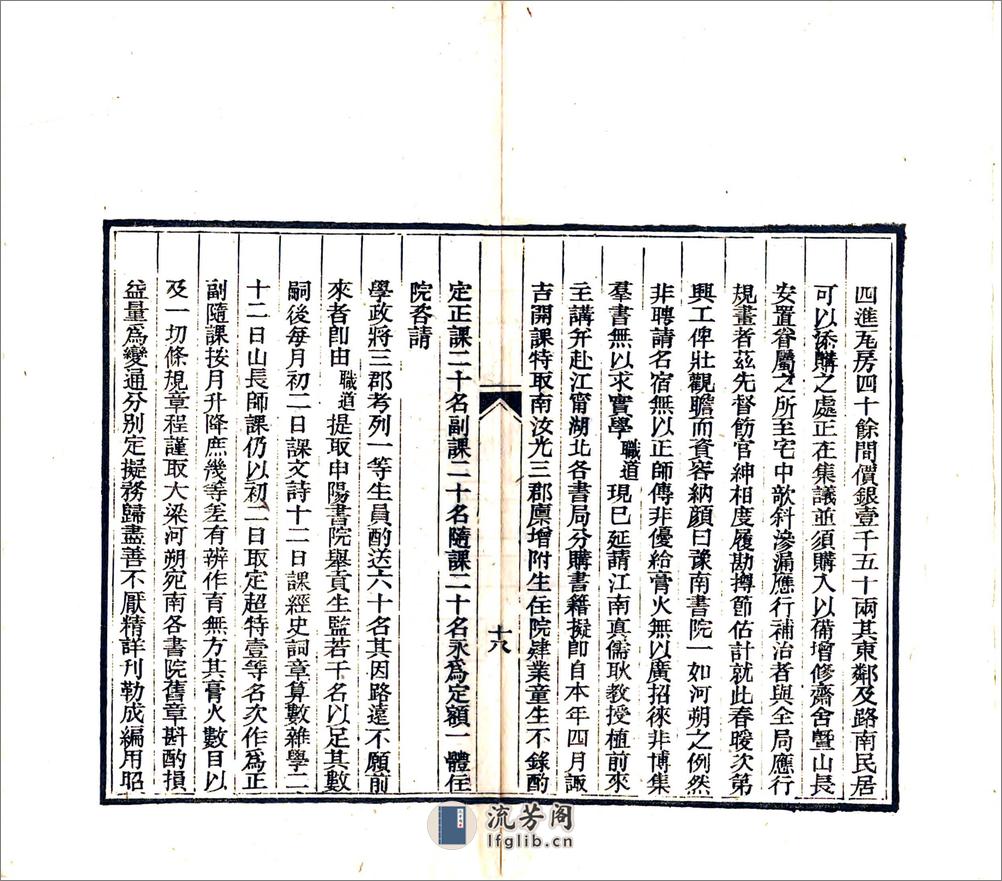 四進瓦房四十餘間價銀壹千五十兩其東鄰及路南民居
可以添購之處正在集議並須購入以備增修齋舍曁山長
安置眷屬之所至宅中欹斜滲漏應行補治者與全局應行
規畫者茲先督飭官紳相度履勘撙節估計就此春暖次第
興工俾壯觀瞻而資容納顏曰豫南書院一如河朔之例然
非聘請名宿無以正師傳非優給膏火無以廣招徠非博集
羣書無以求實學職道現已延請江南真儒耿教授植前來
主講并赴江甯湖北各書局分購書籍擬卽自本年四月諏
吉開課特取南汝光三郡廩增附生住院肄業童生不錄酌
十八
定正課二十名副課二十名隨課二十名永爲定額一體住
院咨請
學政將三郡考列一等生員酌送六十名其因路遠不願前
來者卽由職道提取申陽書院舉貢生監若干名以足其數
嗣後每月初二日課文詩十二日課經史詞章算數雜學二
十二日山長師課仍以初二日取定超特壹等名次作爲正
副隨課按月升降庶幾等差有辨作育無方其膏火數目以
及一切條規章程謹取大梁河朔宛南各書院舊章斟酌損
益量爲變通分別定擬務歸盡善不厭精詳刊勒成編用昭
流芳阁
lfglib.cn